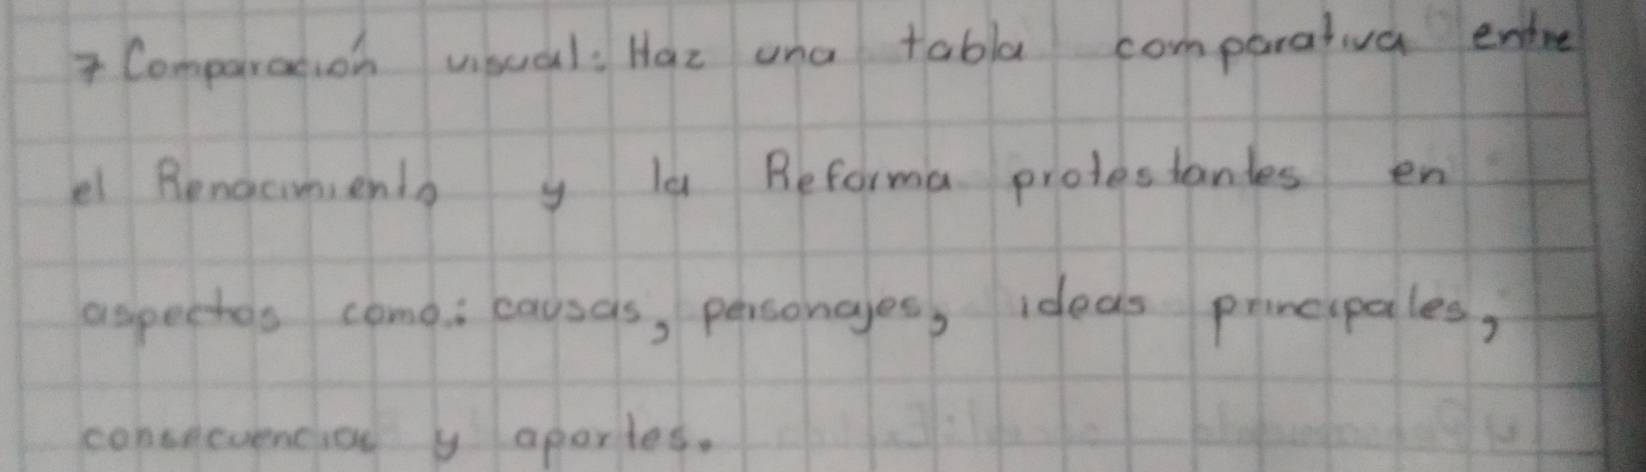 7 Comparación visual: Haz una tabla comparativa entre
el Renacimiento y la Reforma protestantes en
aspectos como: causas, personajes, ideas principales,
consecuencias y aportes.